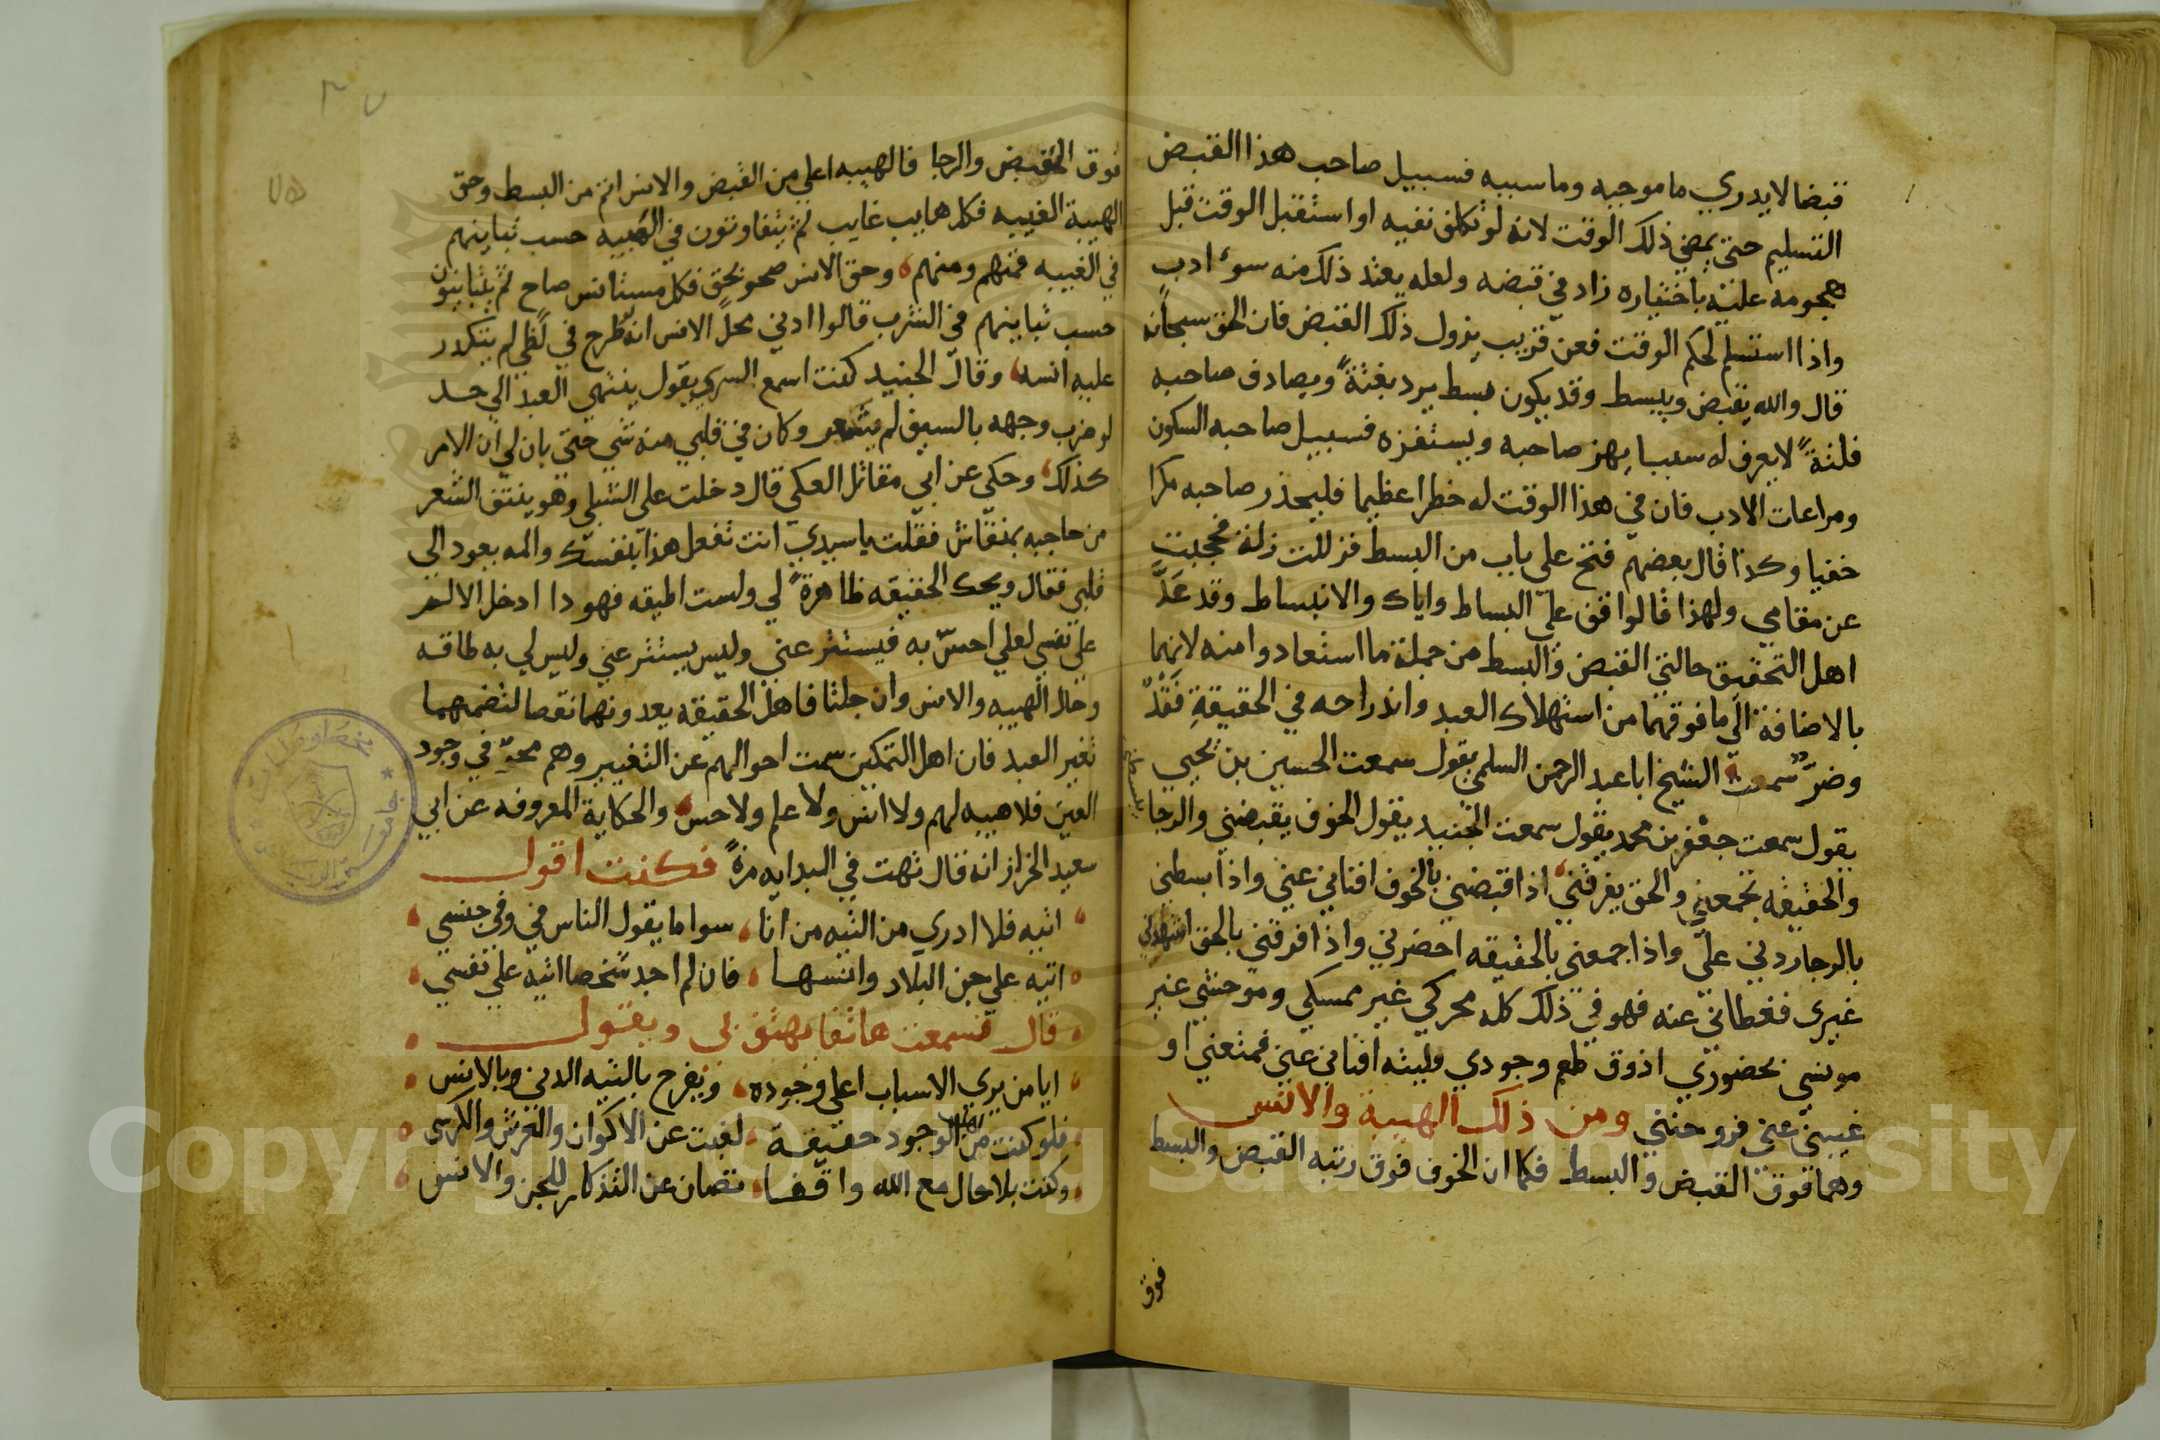 قبضا لا يدري ما موجبه وما سببه فسبيل صاحب هذا القبض
التسليم حتي يمضي ذلك الوقت لانه لو تكلف نفيه او استقبل الوقت قبل
هجومه عليه باختياره زاد في قبضه ولعله يعتد ذلك منه سوء ادب
واذا استسلم لحكم الوقت فعن قريب يزول ذلك القبض فان الحق سبحانه
قال والله يقبض ويبسط وقد يكون بسط يرد بغتة ويصادف صاحبه
فلتة لا يعرف له سببا يهز صاحبه ويستفزه فسبيل صاحبه السكون
ومراعات الادب فان في هذا الوقت له خطرا عظيما فليحذر صاحبه مكرا
خفيا وكذا قال بعضهم فتح علي باب من البسط فزللت زلة فحجبت
عن مقامي ولهذا قالوا قف علي البساط واياك والانبساط وقد عدّ
اهل التحقيق حالتي القبض والبسط من جملة ما استعاذوا منه لانهما
بالاضافة الي ما فوقهما من استهلاك العبد واندراجه في الحقيقة فقد
وضر سمعت الشيخ ابا عبد الرحمن السلمي يقول سمعت الحسين بن يحيي
يقول سمعت جعفر بن محمد يقول سمعت الجنيد يقول الخوف يقبضني والرجا يبسطني
والحقيقه تجمعني والحق يفرقني اذا قبضني بالخوف افناني عني واذا بسطني
بالرجا ردني علي واذا جمعني بالحقيقه احضرني واذا فرقني بالحق اشهدني
غيري فغطاني عنه فهو في ذلك كله محركي غير ممسكي وموحشي غير
مونسي بحضوري اذوق طعم وجودي فليته افناني عني فمتعني او
غيبني عني فروحني ومن ذلك الهيبة والانس
وهما فوق القبض والبسط فكما ان الخوف فوق رتبه القبض والبسط
فوق
٣٧
٧٥
فوق القبض والرجا فالهيبه اعلي من القبض والانس اتم من البسط وحق
الهيبة الغيبه فكل هايب غايب ثم يتفاوتون في الهيبه حسب تباينهم
في الغيبه فمنهم ومنهم وحق الانس صحو بحق فكل مستانس صاح ثم يتباينون
حسب تباينهم في الشرب قالوا ادني محل الانس انه لو طرح في لظي لم يتكدر
عليه انسه وقال الجنيد كنت اسمع السري يقول ينتهي العبد الي حد
لو ضرب وجهه بالسيف لم يشعر وكان في قلبي منه شي حتي بان لي ان الامر
كذلك وحكي عن ابي مقاتل العكي قال دخلت علي الشبلي وهو ينتف الشعر
من حاجبه بمنقاش فقلت يا سيدي انت تفعل هذا بنفسك والمه يعود الي
قلبي فقال ويحك الحقيقه ظاهرة لي ولست اطيقه فهو ذا ادخل الالم
علي نفسي لعلي احس به فيستتر عني وليس يستتر عني وليس لي به طاقه
وحال الهيبه والانس وان جلتا فاهل الحقيقه يعدونهما نقصا لتضمنهما
تغير العبد فان اهل التمكين سمت احوالهم عن التغيير وهم محو في وجود
العين فلا هيبه لهم ولا انس ولا علم ولا حس والحكاية المعروفه عن ابي
سعيد الخراز انه قال تهت في البدايه مرة فكنت اقول
اتيه فلا ادري من التيه من انا سوا ما يقول الناس في وفي جنسي
اتيه علي جن البلاد وانسها فان لم اجد شخصا اتيه علي نفسي
قال فسمعت هاتفا يهتف بي ويقول
ايا من يري الاسباب اعلي وجوده ويفرح بالتيه الدني وبالانس
فلو كنت من اهل الوجود حقيقة لغبت عن الاكوان والعرش والكرسي
وكنت بلا حال مع الله واقفا تصان عن التذكار للجن والانس
Copyright © King Saud University